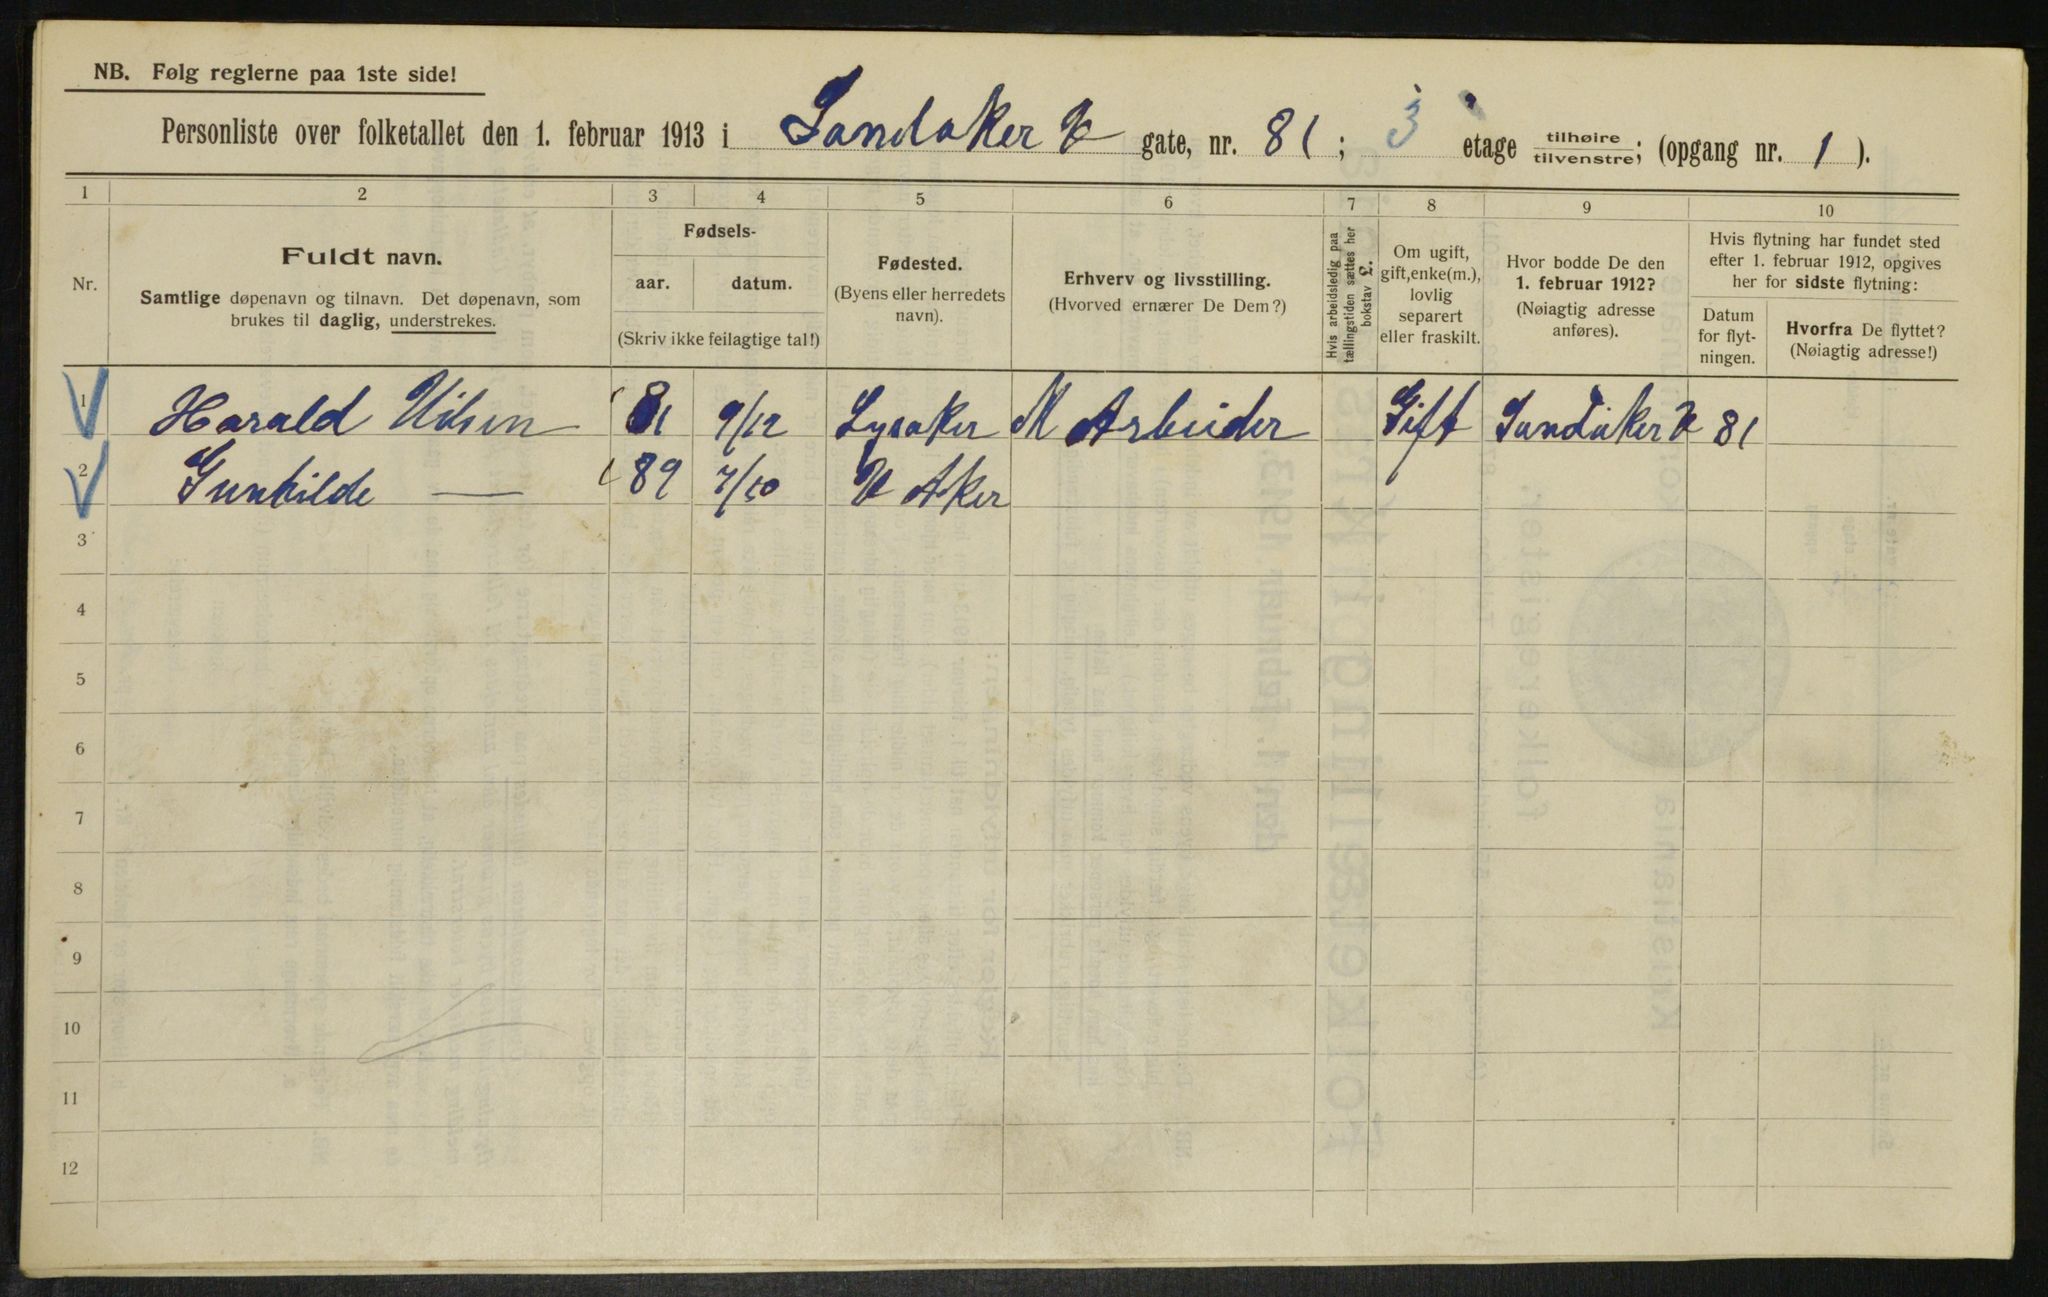 NB. Følg reglerne paa 1ste side!
Personliste over folketallet den 1. februar 1913 i Sandaker V gate, nr. 81; 3 etage tilhøire/tilvenstre; (opgang nr. 1 ).
1 2 3 4 5 6 7 8 9 10
Nr.
Fuldt navn.
Samtlige døpenavn og tilnavn. Det døpenavn, som
brukes til daglig, understrekes.
Fødsels-
aar. datum.
(Skriv ikke feilagtige tal!)
Fødested.
(Byens eller herredets
navn).
Erhverv og livsstilling.
(Hvorved ernærer De Dem?)
Hvis arbeidsledig paa
tællingstiden sættes her
bokstav L.
Om ugift,
gift, enke(m.),
lovlig
separert
eller fraskilt.
Hvor bodde De den
1. februar 1912?
(Nøiagtig adresse
anføres).
Hvis flytning har fundet sted
efter 1. februar 1912, opgives
her for sidste flytning:
Datum
for flyt-
ningen.
Hvorfra De flyttet?
(Nøiagtig adresse!)
1 Harald Nilsen 81 9/12 Lysaker M Arbeider Gift Sandaker V 81
2 Gunhilde — 89 7/10 V Aker
3
4
5
6
7
8
9
10
11
12